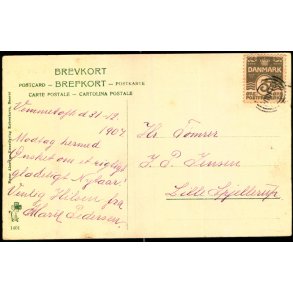 BREVKORT
POSTCARD — BREFKORT — POSTKARTE
CARTE POSTALE — CARTOLINA POSTALE
DANMARK
d 31-12
1907
Modtag hermed
Ønsket om et rigtigt
glædeligt Nytaar!
Venlig Hilsen fra
Marie Pedersen
Hr. Tømrer
J. P. Jensen
Lille Spjellerup
1401